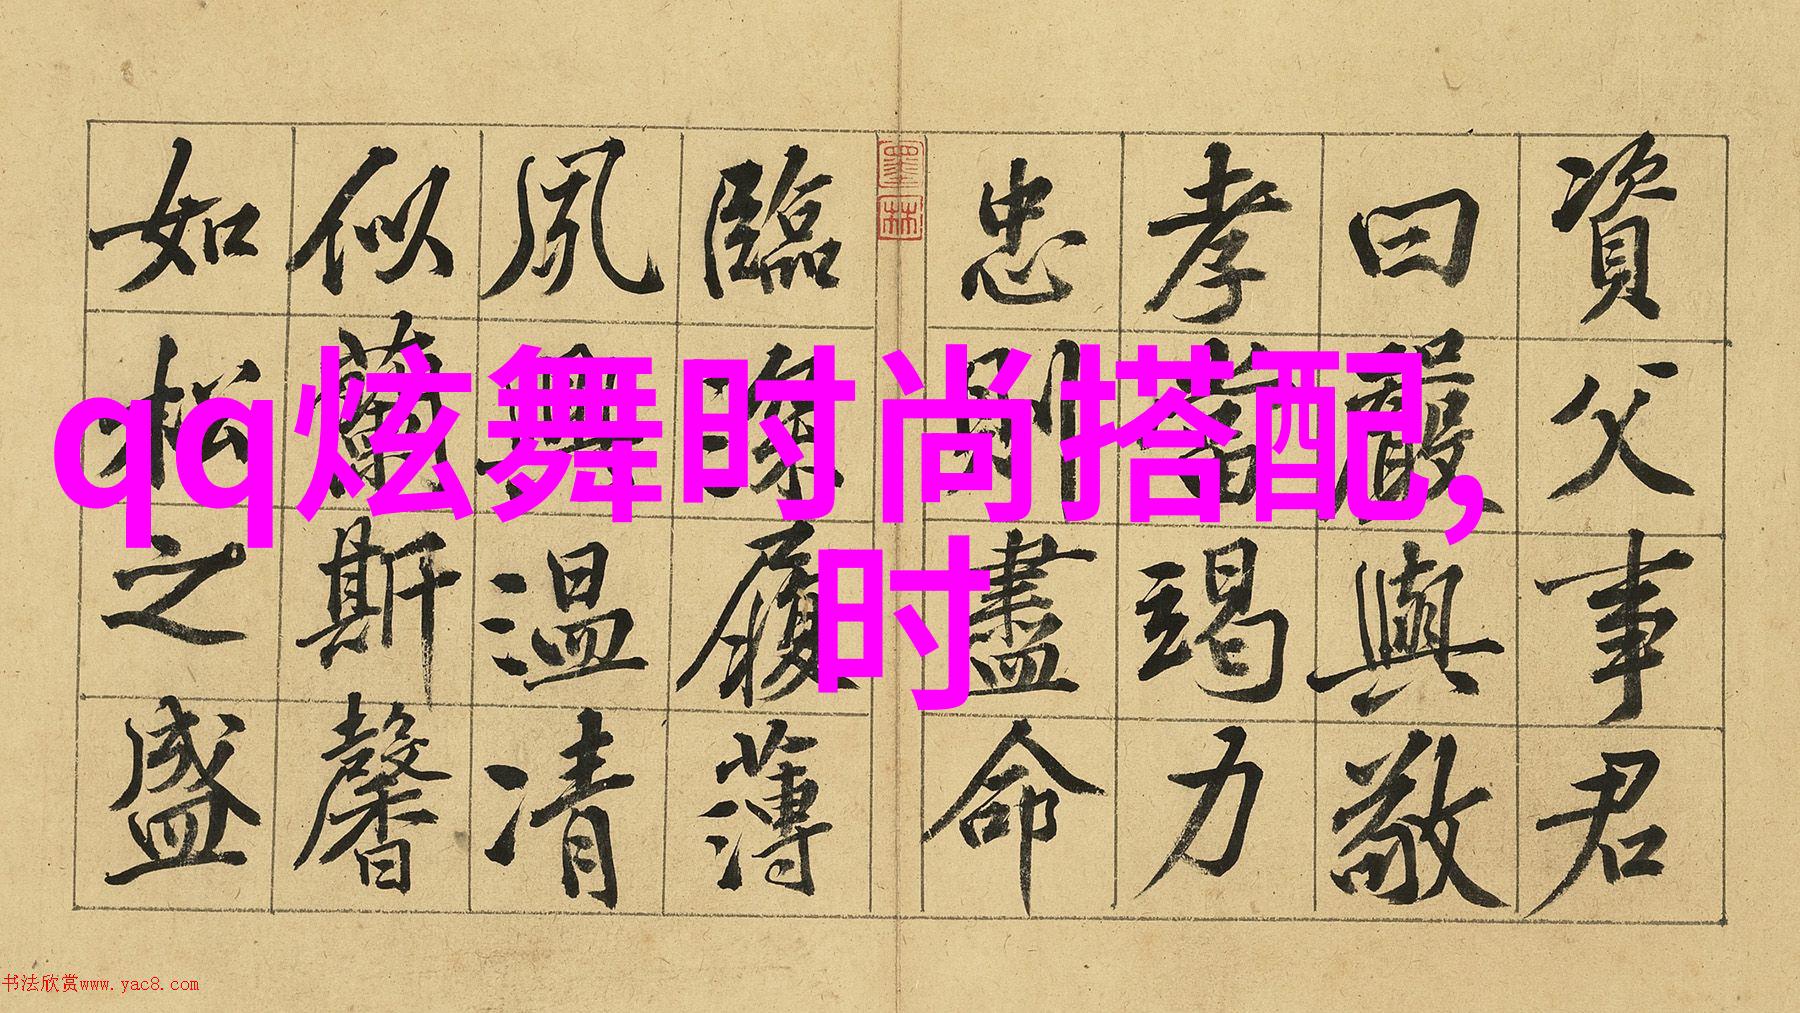 資父事君
曰嚴與敬
孝當竭力
忠則盡命
墨林
臨深履薄
夙興溫凊
似蘭斯馨
如松之盛
qq炫舞时尚搭配,
时
书法欣赏www.yac8.com